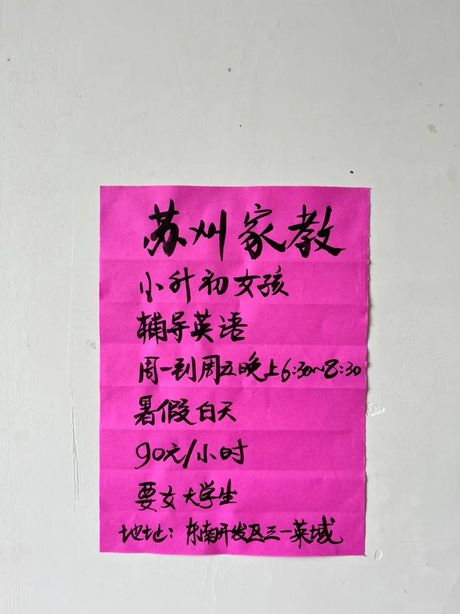 苏州家教
小升初女孩
辅导英语
周一到周五晚上6:30~8:30
暑假白天
90元/小时
要女大学生
地址：东南开发区三一英域